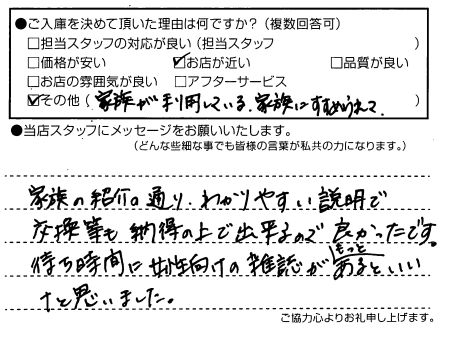 ●ご入庫を決めて頂いた理由は何ですか？（複数回答可）
□担当スタッフの対応が良い（担当スタッフ　　　　　）
□価格が安い　☑お店が近い　□品質が良い
□お店の雰囲気が良い　□アフターサービス
☑その他（家族が利用している。家族にすすめられて）
●当店スタッフにメッセージをお願いいたします。
（どんな些細な事でも皆様の言葉が私共の力になります。）
家族の紹介の通り、わかりやすい説明で
交換等も納得の上で出来るので良かったです。
待ち時間に女性向けの雑誌がもっとあるといい
なと思いました。
ご協力心よりお礼申し上げます。